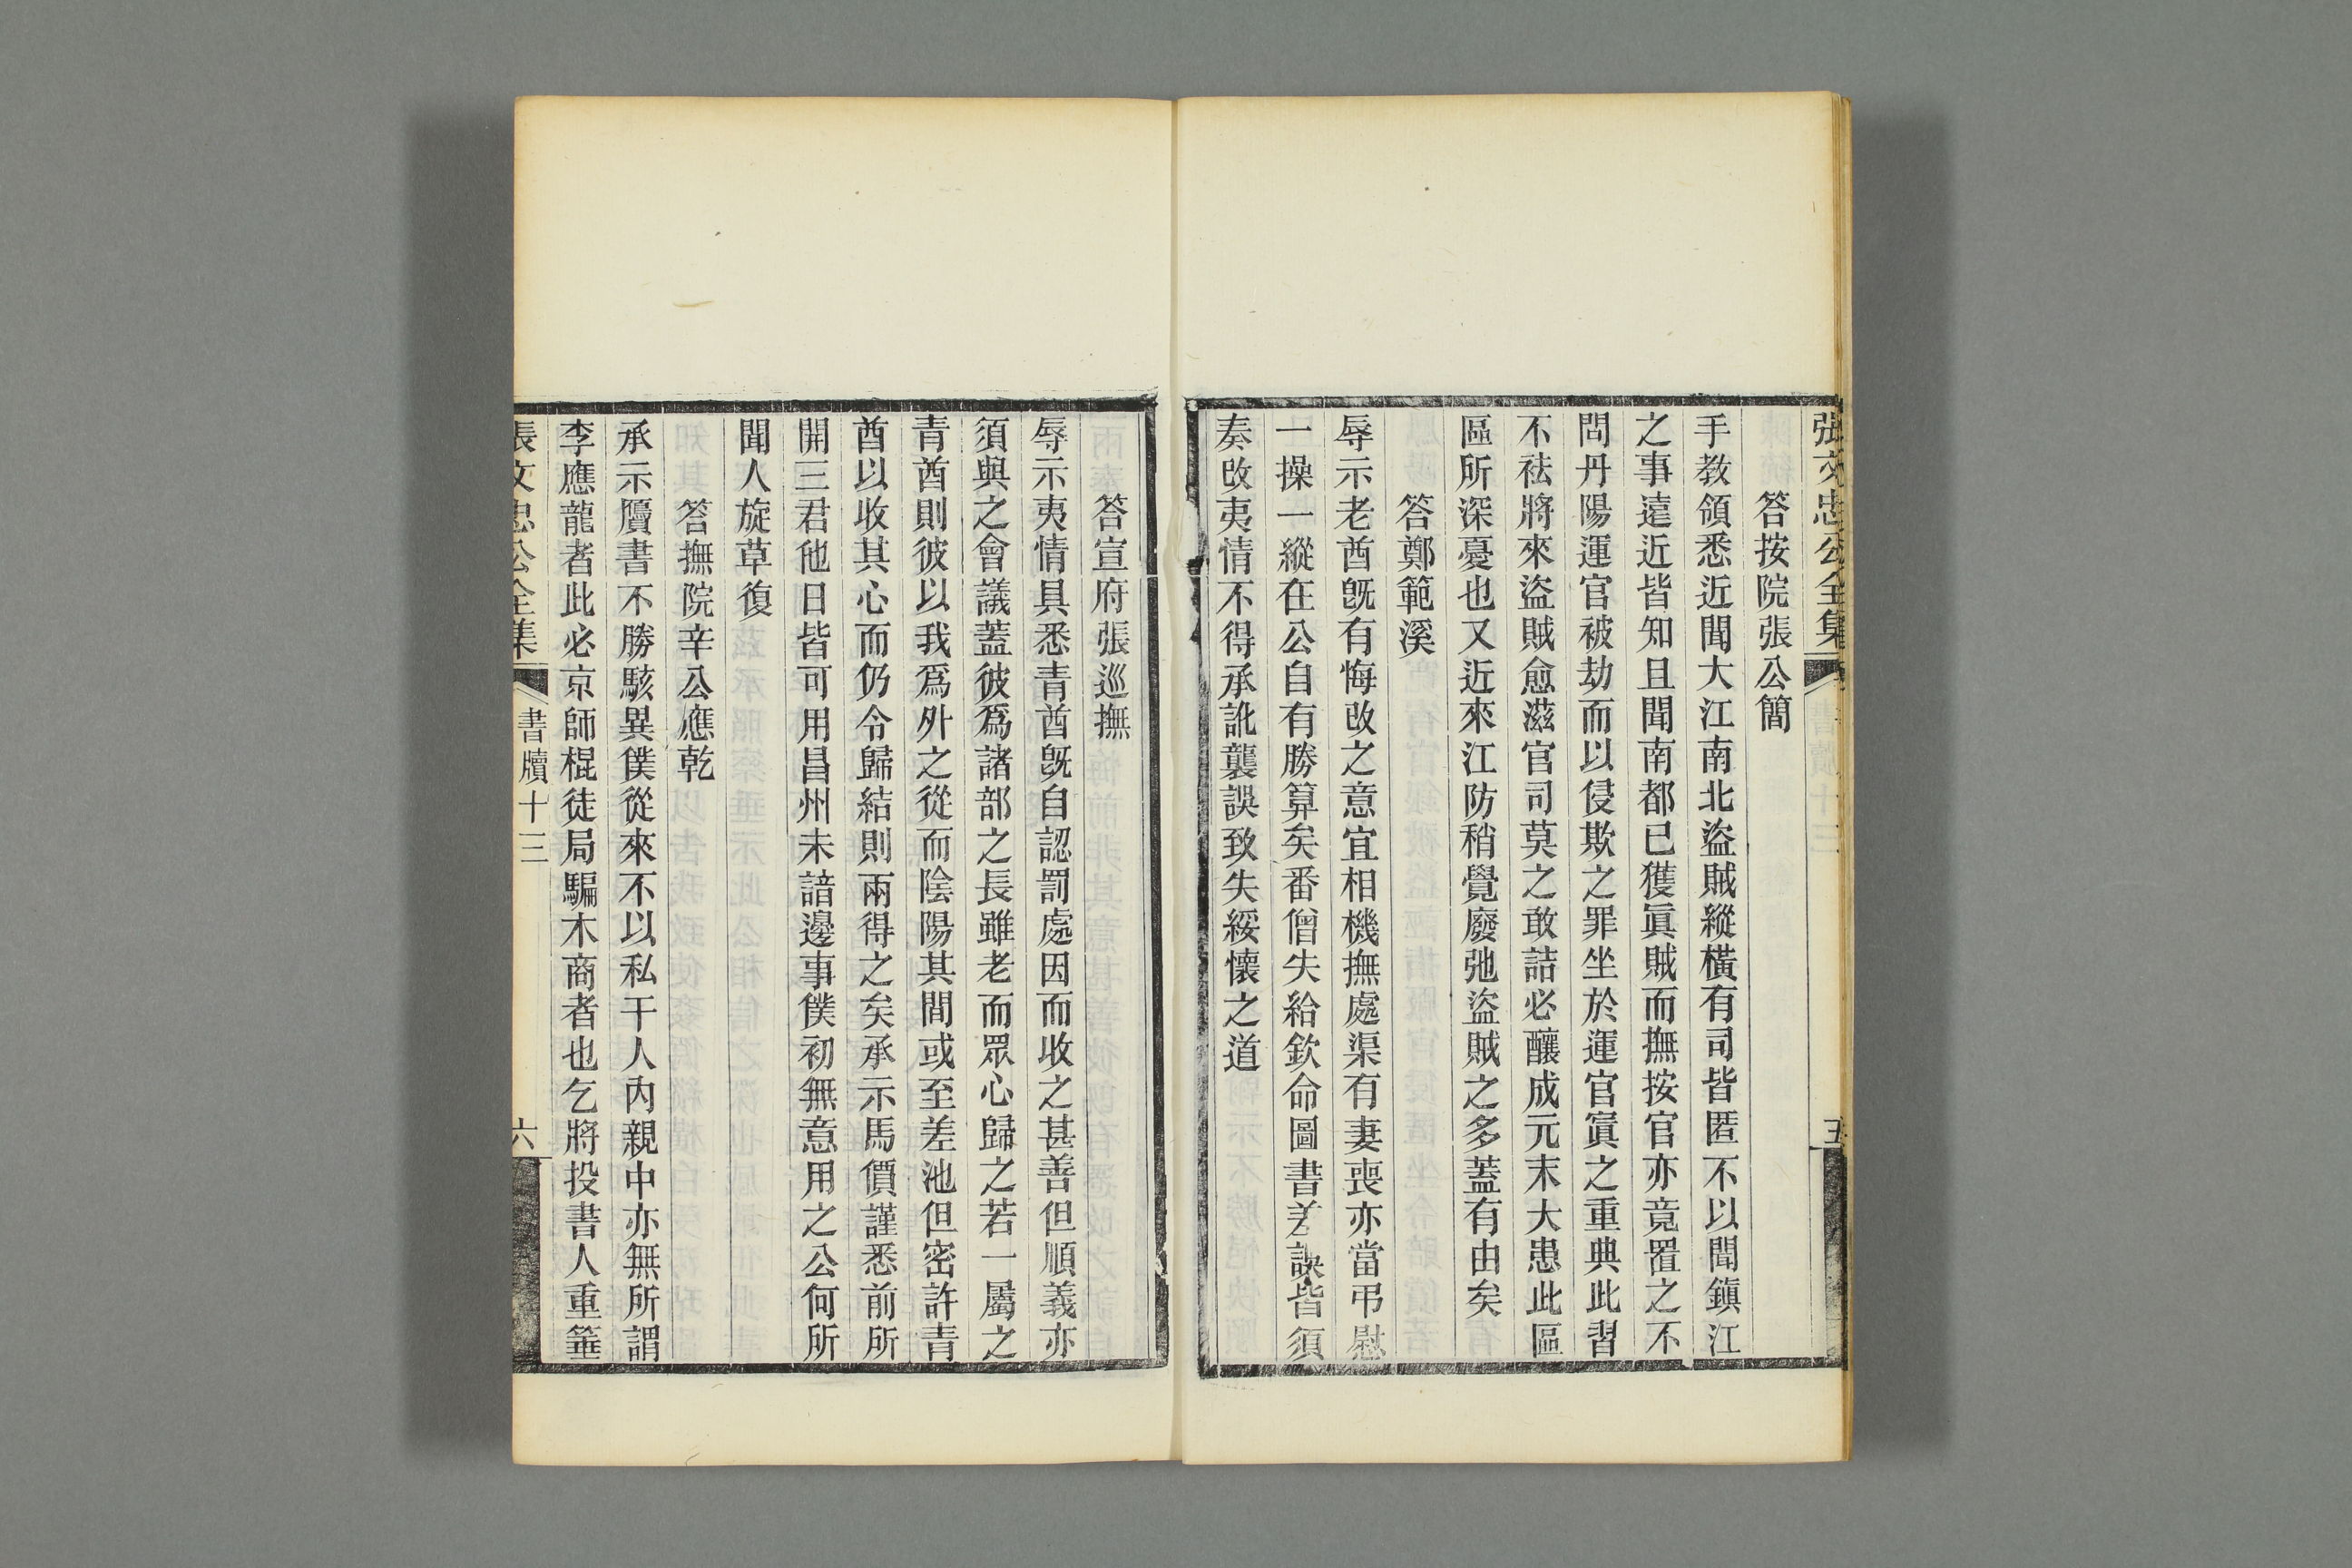 張文忠公全集
五
答按院張公簡
手教領悉近聞大江南北盜賊縱橫有司皆匿不以聞鎭江
之事遠近皆知且聞南都已獲眞賊而撫按官亦竟置之不
問丹陽運官被劫而以侵欺之罪坐於運官寘之重典此習
不祛將來盜賊愈滋官司莫之敢詰必釀成元末大患此區
區所深憂也又近來江防稍覺廢弛盜賊之多蓋有由矣
答鄭範溪
辱示老酋旣有悔改之意宜相機撫處渠有妻喪亦當弔慰
一操一縱在公自有勝算矣番僧失給欽命圖書差誤皆須
奏改夷情不得承訛襲誤致失綏懷之道
答宣府張巡撫
辱示夷情具悉青酋旣自認罰處因而收之甚善但順義亦
須與之會議蓋彼爲諸部之長雖老而眾心歸之若一屬之
青酋則彼以我爲外之從而陰陽其間或至差池但密許青
酋以收其心而仍令歸結則兩得之矣承示馬價謹悉前所
開三君他日皆可用昌州未諳邊事僕初無意用之公何所
聞人旋草復
答撫院辛公應乾
承示贗書不勝駭異僕從來不以私干人內親中亦無所謂
李應龍者此必京師棍徒局騙木商者也乞將投書人重箠
張文忠公全集
書牘十三
六